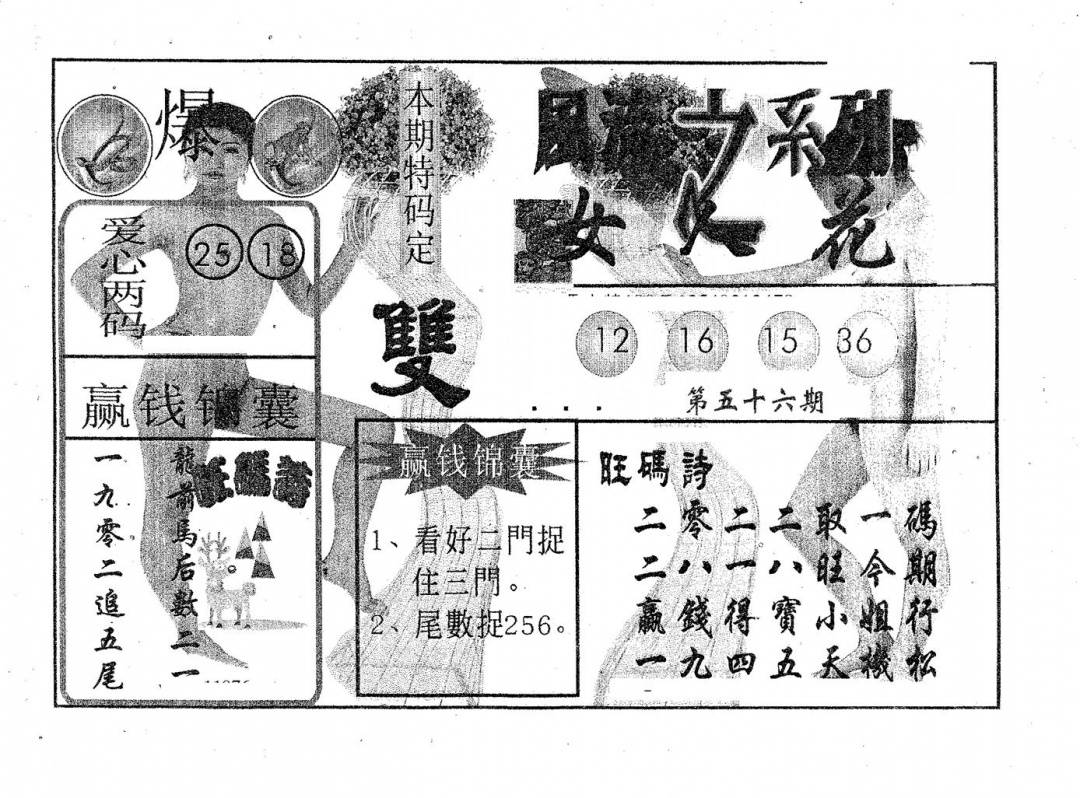 爆
爱心两码
25 18
赢钱锦囊
龍前馬后數二一
一九零二追五尾
旺碼詩
本期特码定
雙
系列
女 花
12 16 15 36
. . .
第五十六期
赢钱锦囊
1、看好二門捉
住三門。
2、尾數捉256。
旺碼詩
二零二二取一碼
二八一八旺今期
赢錢得寶小姐行
一九四五天機松